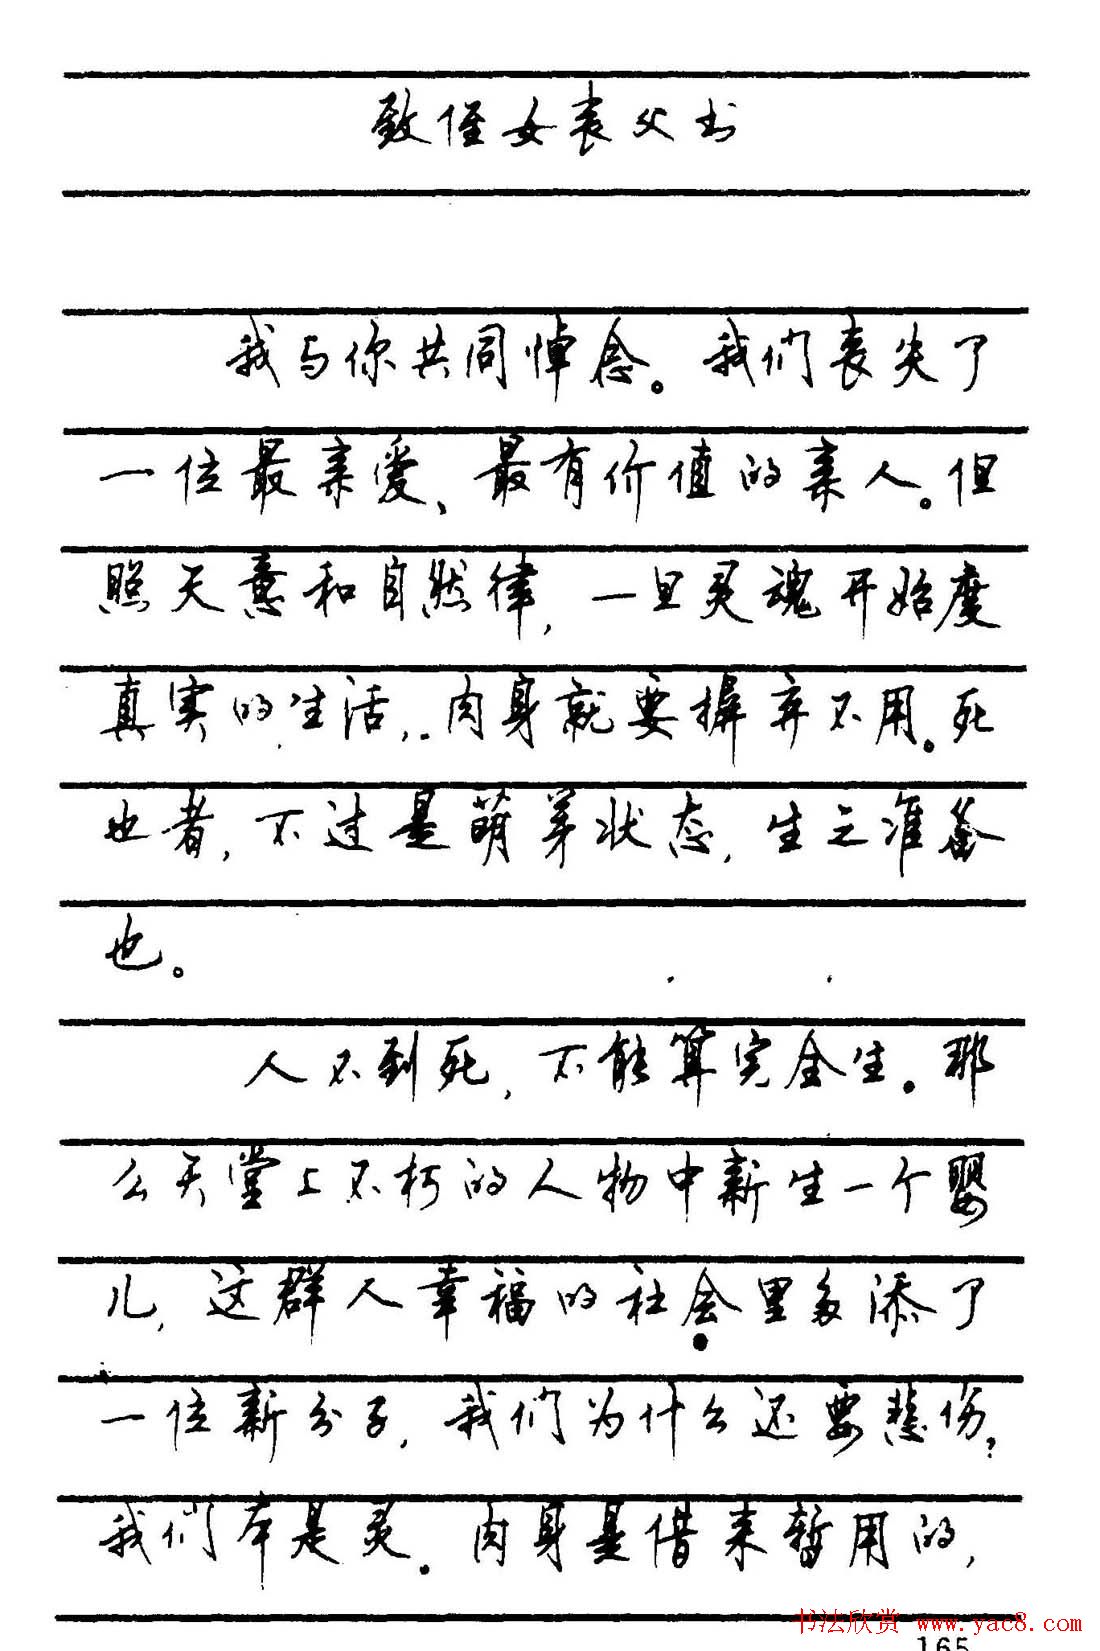 致侄女丧父书
我与你共同悼念。我们丧失了
一位最亲爱、最有价值的亲人。但
照天意和自然律,一旦灵魂开始度
真实的生活,肉身就要摒弃不用。死
也者,不过是萌芽状态,生之准备
也。
人不到死,不能算完全生。那
么天堂上不朽的人物中新生一个婴
儿,这群人幸福的社会里多添了
一位新分子,我们为什么还要悲伤?
我们本是灵。肉身是借来暂用的,
书法欣赏 www.yac8.com
165